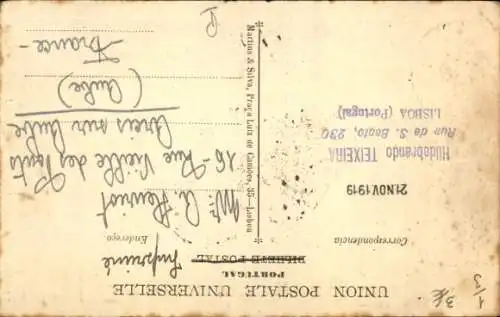 UNION POSTALE UNIVERSELLE
PORTUGAL
BILHETE POSTAL
Imprimé
Correspondencia
Endereço
21 NOV 1919
Hildebrando TEIXEIRA
Rua de S. Bento, 230
LISBOA (Portugal)
Martins & Silva, Praça Luiz de Camões, 35—Lisboa
Mr. A.
16 - Rue Vieille des Ponts
Arcis sur Aube
(Aube)
France